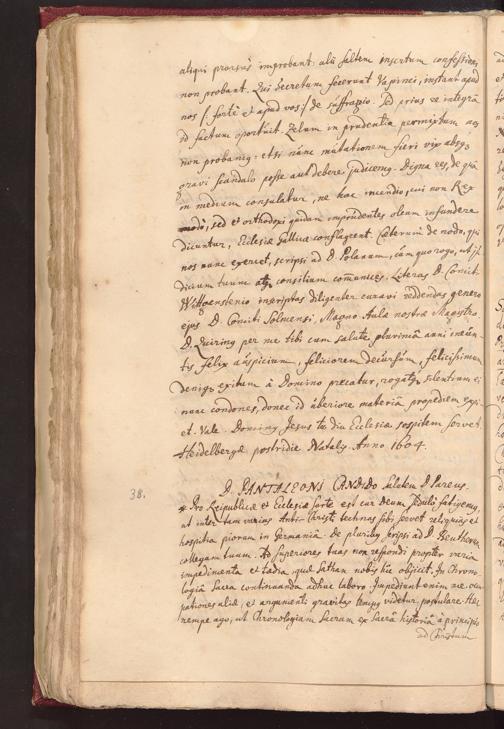 aliqui prorsus improbant. alii saltem insertum confessioni
non probant. Qui decretum fecerunt Vapinci, instant apud
nos /: forte et apud vos :/ de suffragio. Id prius re integrâ
id factum oportuit. Zelum imprudentia permixtum nos
non probamus: etsi nunc mutationem fieri vix absq,
gravi scandalo posse aut debere judicemus. Digna res, de quâ
in medium consulatur, ne hac incendio, cui non Rex
modò, sed et orthodoxi quidam imprudentes oleum infundere
dicuntur, Ecclesiæ Gallicæ conflagrent. Cæterum de nodo, qui
nos nunc exercet, scripsi ad D. Polanum, cum quo rogo, ut ju-
dicium tuum atq, consilium communices. Literas D. Comiti
Witgenstenio inscriptas diligenter curavi reddendas genero
ejus D. Comiti Solmensi, Magno Aulæ nostræ Magistro.
D. Quiring per me tibi cum salute plurimâ anni ineun-
tis felix auspicium, feliciorem decursum, felicissimum
deniq, exitum à Domino precatur, rogatq, silentium ei
nunc condones, donec id uberiore materiâ propediem expi-
et. Vale. Dominus Jesus te diu Ecclesiæ sospitem servet.
Heidelbergæ postridie Natalis Anno 1604.
38.
D. PANTALEONI CANDIDO salutem D. Pareus.
Pro Reipublicæ et Ecclesiæ sorte est cur Deum sedulò fatigemus,
ut inter tam varias Anti-Christi technas sibi servet reliquias et
hospitia piorum in Germaniâ. de pluribus scripsi ad D.
collegam tuum. Ad superiores tuas non respondi propter varia
impedimenta et tædia, quæ Sathan nobis hîc objicit. In Chrono-
logiâ Sacra continuanda adhuc laboro. Impediunt enim me occu-
pationes aliæ, et argumenti gravitas tempus videtur postulare. Hoc
nempe ago, ut Chronologiam Sacram ex Sacrâ historiâ à principio
ad Christum